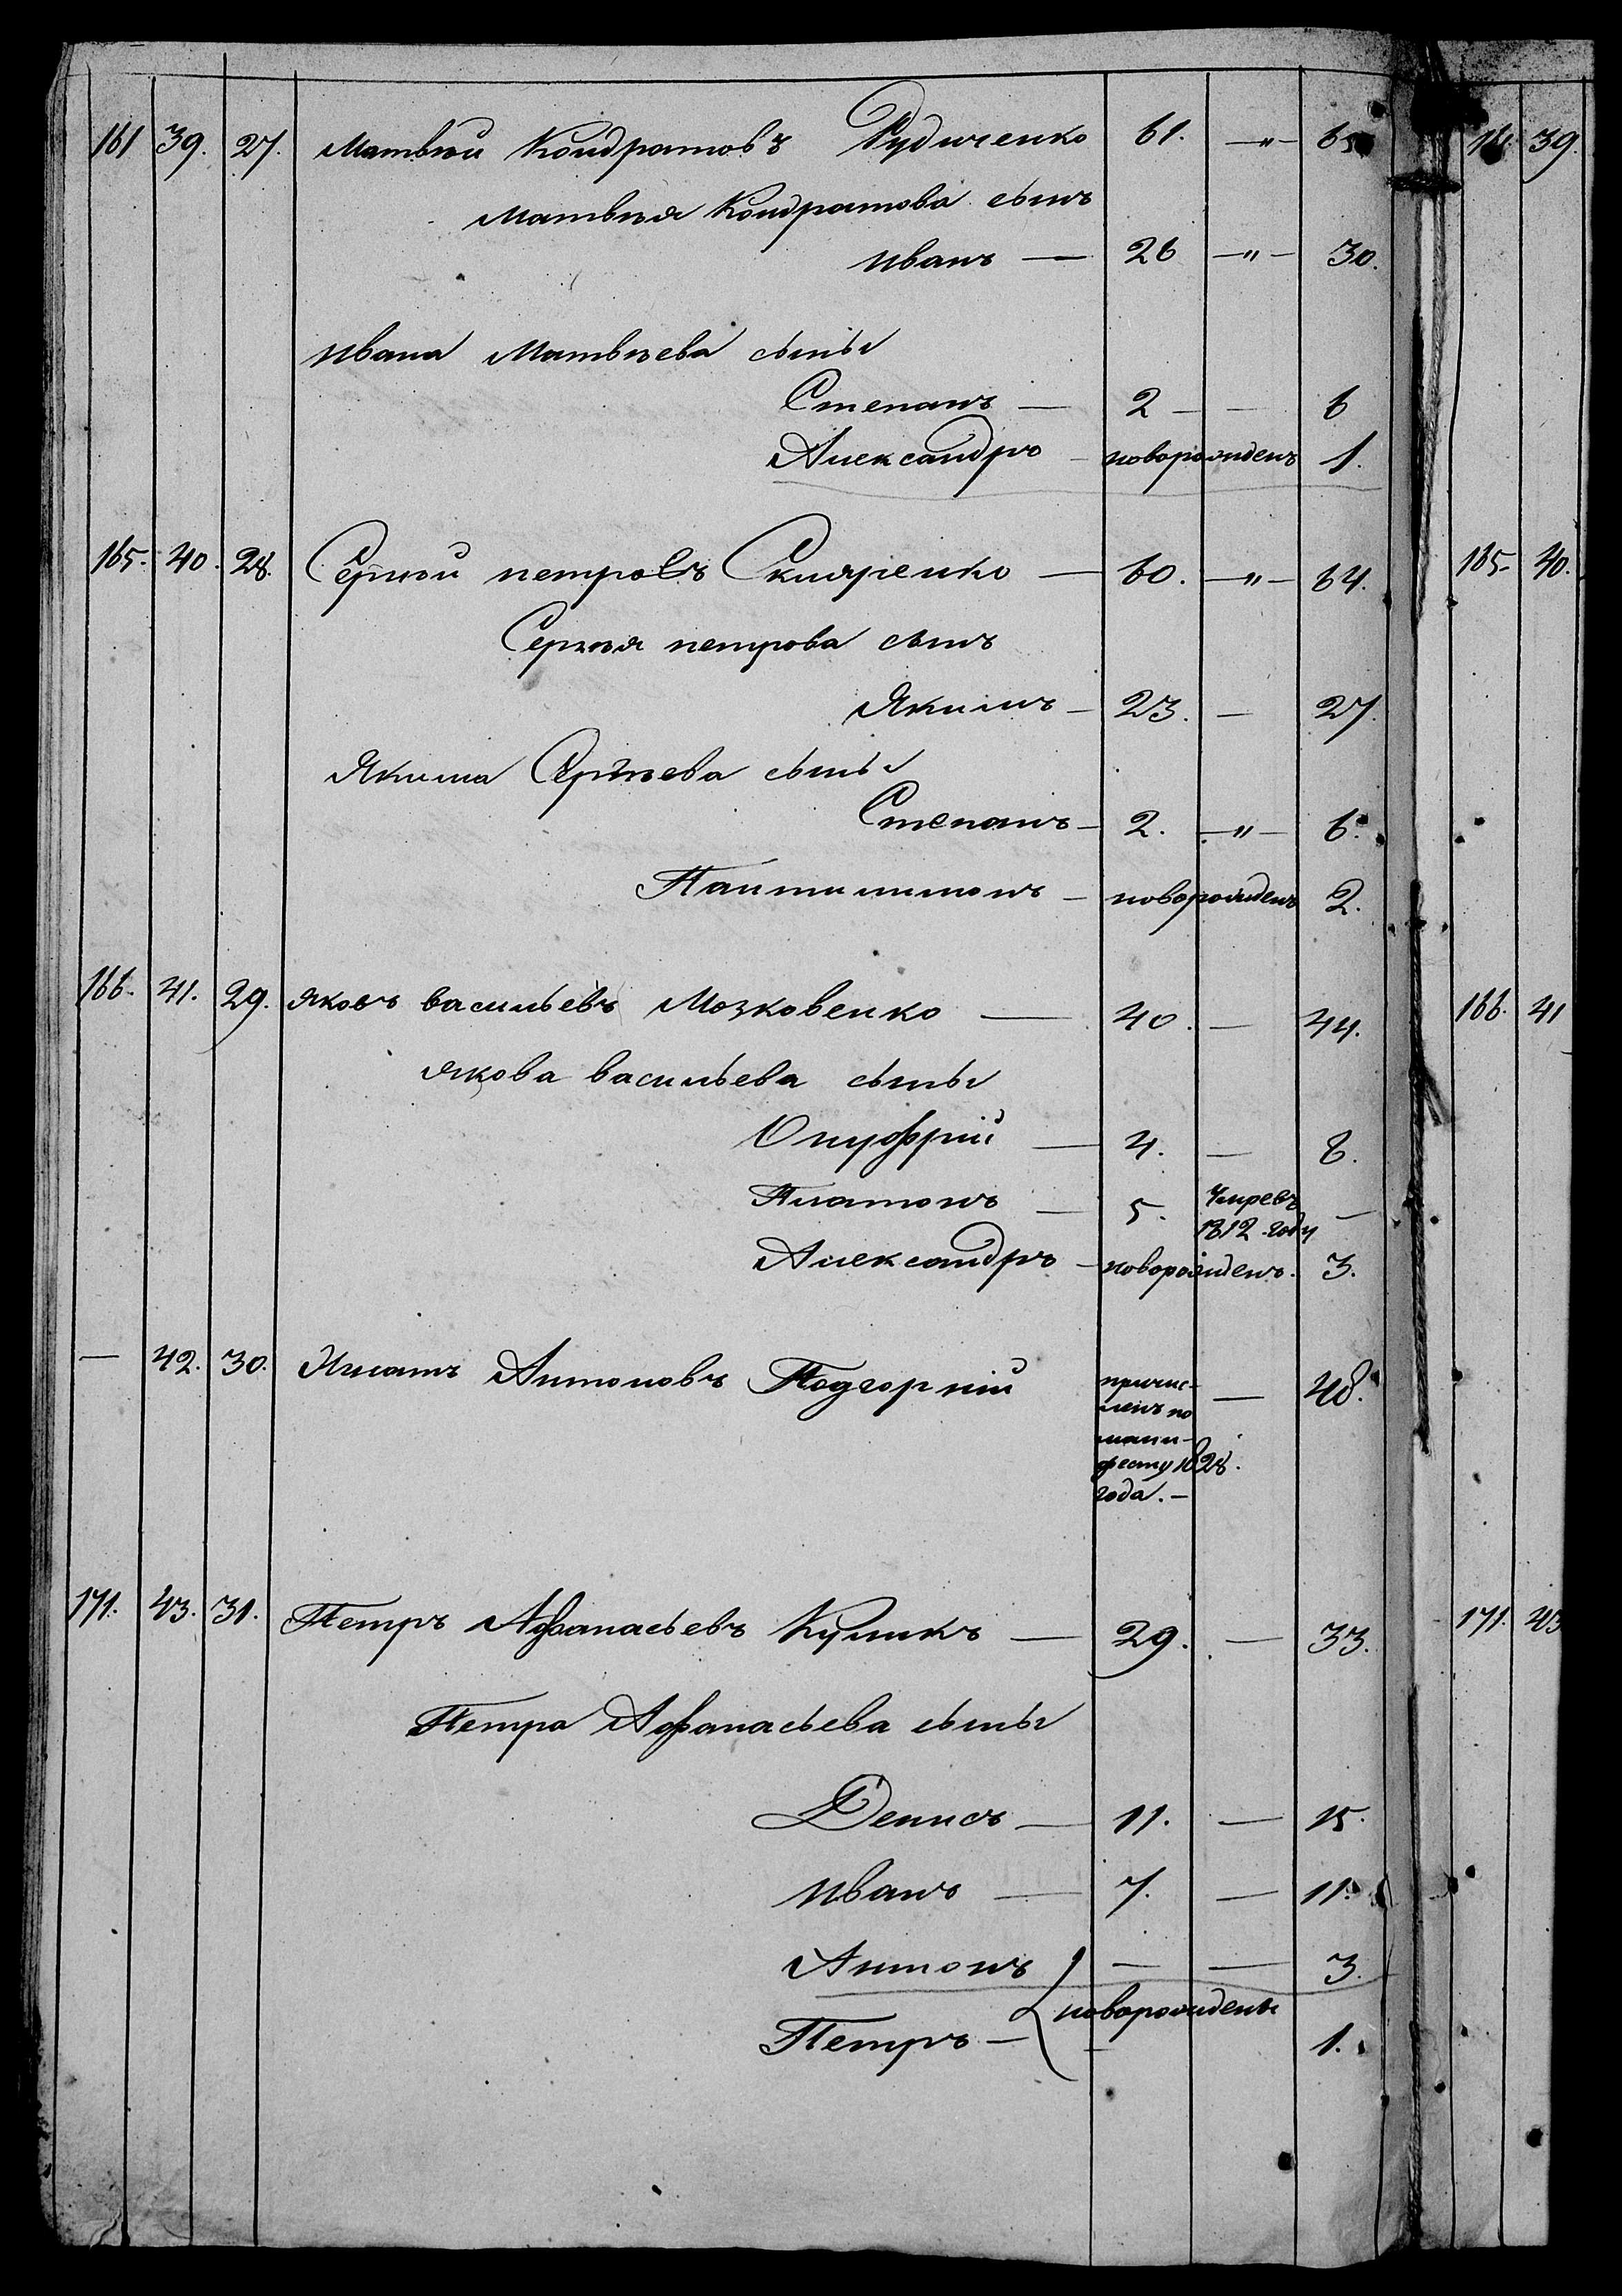 161 39. 27. Матвѣй Кондратовъ Рудиченко 61. —"— 65
Матвѣя Кондратова сынъ
Иванъ — 26 —"— 30.
Ивана Матвѣева сыны
Степанъ — 2 — — 6
Александръ — новорожденъ 1.
165. 40. 28. Сергѣй петровъ Скляренко — 60. —"— 64.
Сергѣя петрова сынъ
Якимъ — 23. — 27.
Якима Сергѣева сыны
Степанъ — 2. —"— 6.
Пантилимонъ — новорожденъ 2.
166. 41. 29. Яковъ васильевъ Мозковенко — 40. — 44.
Якова васильева сыны
Онуфрій — 4. — 8.
Платонъ — 5. Умре въ
1812 году —
Александръ — новорожденъ. 3.
— 42. 30. Игнатъ Антоновъ Подгорній причис-
ленъ по
мани-
фесту 1828.
года. — — 48.
171. 43. 31. Петръ Афанасьевъ Куликъ — 29. — 33.
Петра Афанасьева сыны
Денисъ — 11. — 15.
Иванъ — 7. — 11.
Антонъ — — 3.
новорождены
Петръ — 1.
161. 39.
165. 40.
166. 41
171. 43